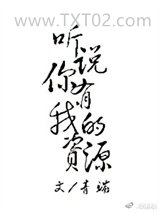 www.TXT02.com
听说你有我的資源
文/青端